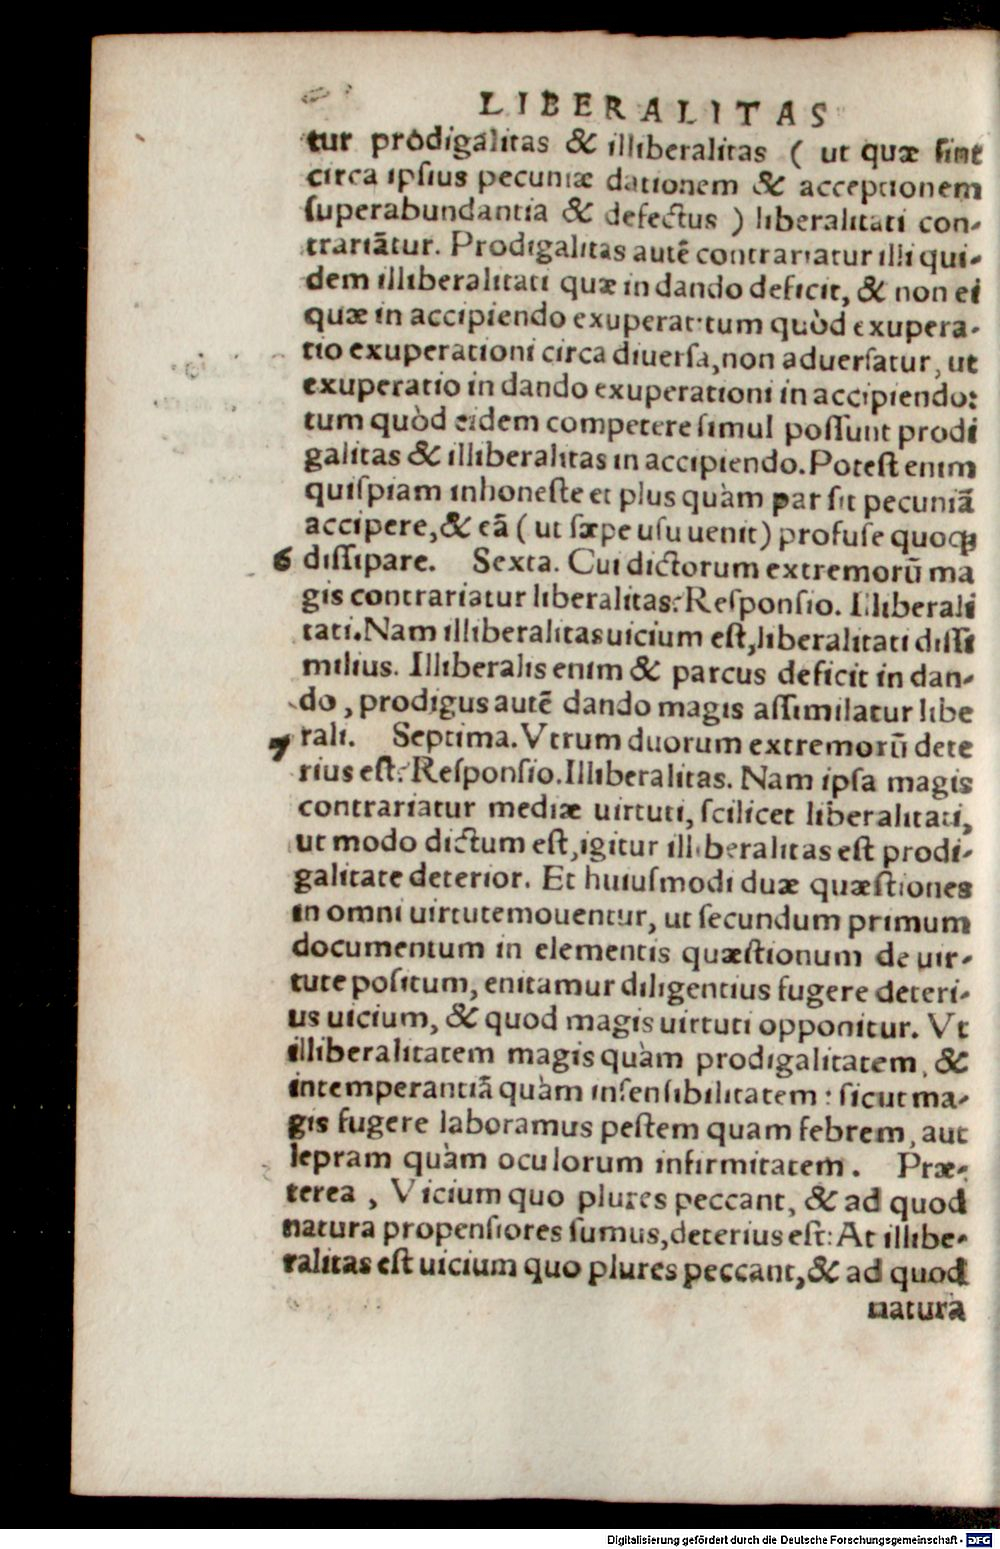 LIBERALITAS
tur prodigalitas & illiberalitas ( ut quæ ſint
circa ipſius pecuniæ dationem & acceptionem
ſuperabundantia & defectus ) liberalitati con-
trariātur. Prodigalitas autē contrariatur illi qui-
dem illiberalitati quæ in dando deficit, & non ei
quæ in accipiendo exuperat:tum quòd exupera-
tio exuperationi circa diuerſa,non aduerſatur, ut
exuperatio in dando exuperationi in accipiendo:
tum quòd eidem competere ſimul poſſunt prodi
galitas & illiberalitas in accipiendo.Poteſt enim
quiſpiam inhoneſte et plus quàm par ſit pecuniā
accipere,& eā ( ut ſæpe uſu uenit) profuſe quoqꝫ
6 diſſipare. Sexta. Cui dictorum extremorū ma
gis contrariatur liberalitas? Reſponſio. Illiberali
tati.Nam illiberalitas uicium eſt,liberalitati diſſi
milius. Illiberalis enim & parcus deficit in dan-
do , prodigus autē dando magis aſſimilatur libe
7 rali. Septima. Vtrum duorum extremorū dete
rius eſt? Reſponſio.Illiberalitas. Nam ipſa magis
contrariatur mediæ uirtuti, ſcilicet liberalitati,
ut modo dictum eſt,igitur illiberalitas eſt prodi-
galitate deterior. Et huiuſmodi duæ quæſtiones
in omni uirtute mouentur, ut ſecundum primum
documentum in elementis quæſtionum de uir-
tute poſitum, enitamur diligentius fugere deteri-
us uicium, & quod magis uirtuti opponitur. Vt
illiberalitatem magis quàm prodigalitatem, &
intemperantiā quàm inſenſibilitatem : ſicut ma-
gis fugere laboramus peſtem quam febrem, aut
lepram quàm oculorum infirmitatem. Præ-
terea , Vicium quo plures peccant, & ad quod
natura propenſiores ſumus,deterius eſt: At illibe-
ralitas eſt uicium quo plures peccant,& ad quod
natura
Digitalisierung gefördert durch die Deutsche Forschungsgemeinschaft - DFG